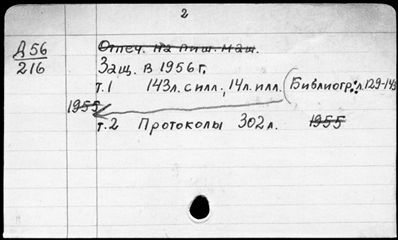 2
Д 56
216
Отпеч. на пиш. маш.
Защ. в 1956 г.
т.1 143 л. с илл., 14 л. илл. (Библиогр.: л. 129-143
1955
т.2 Протоколы 302 л. 1955